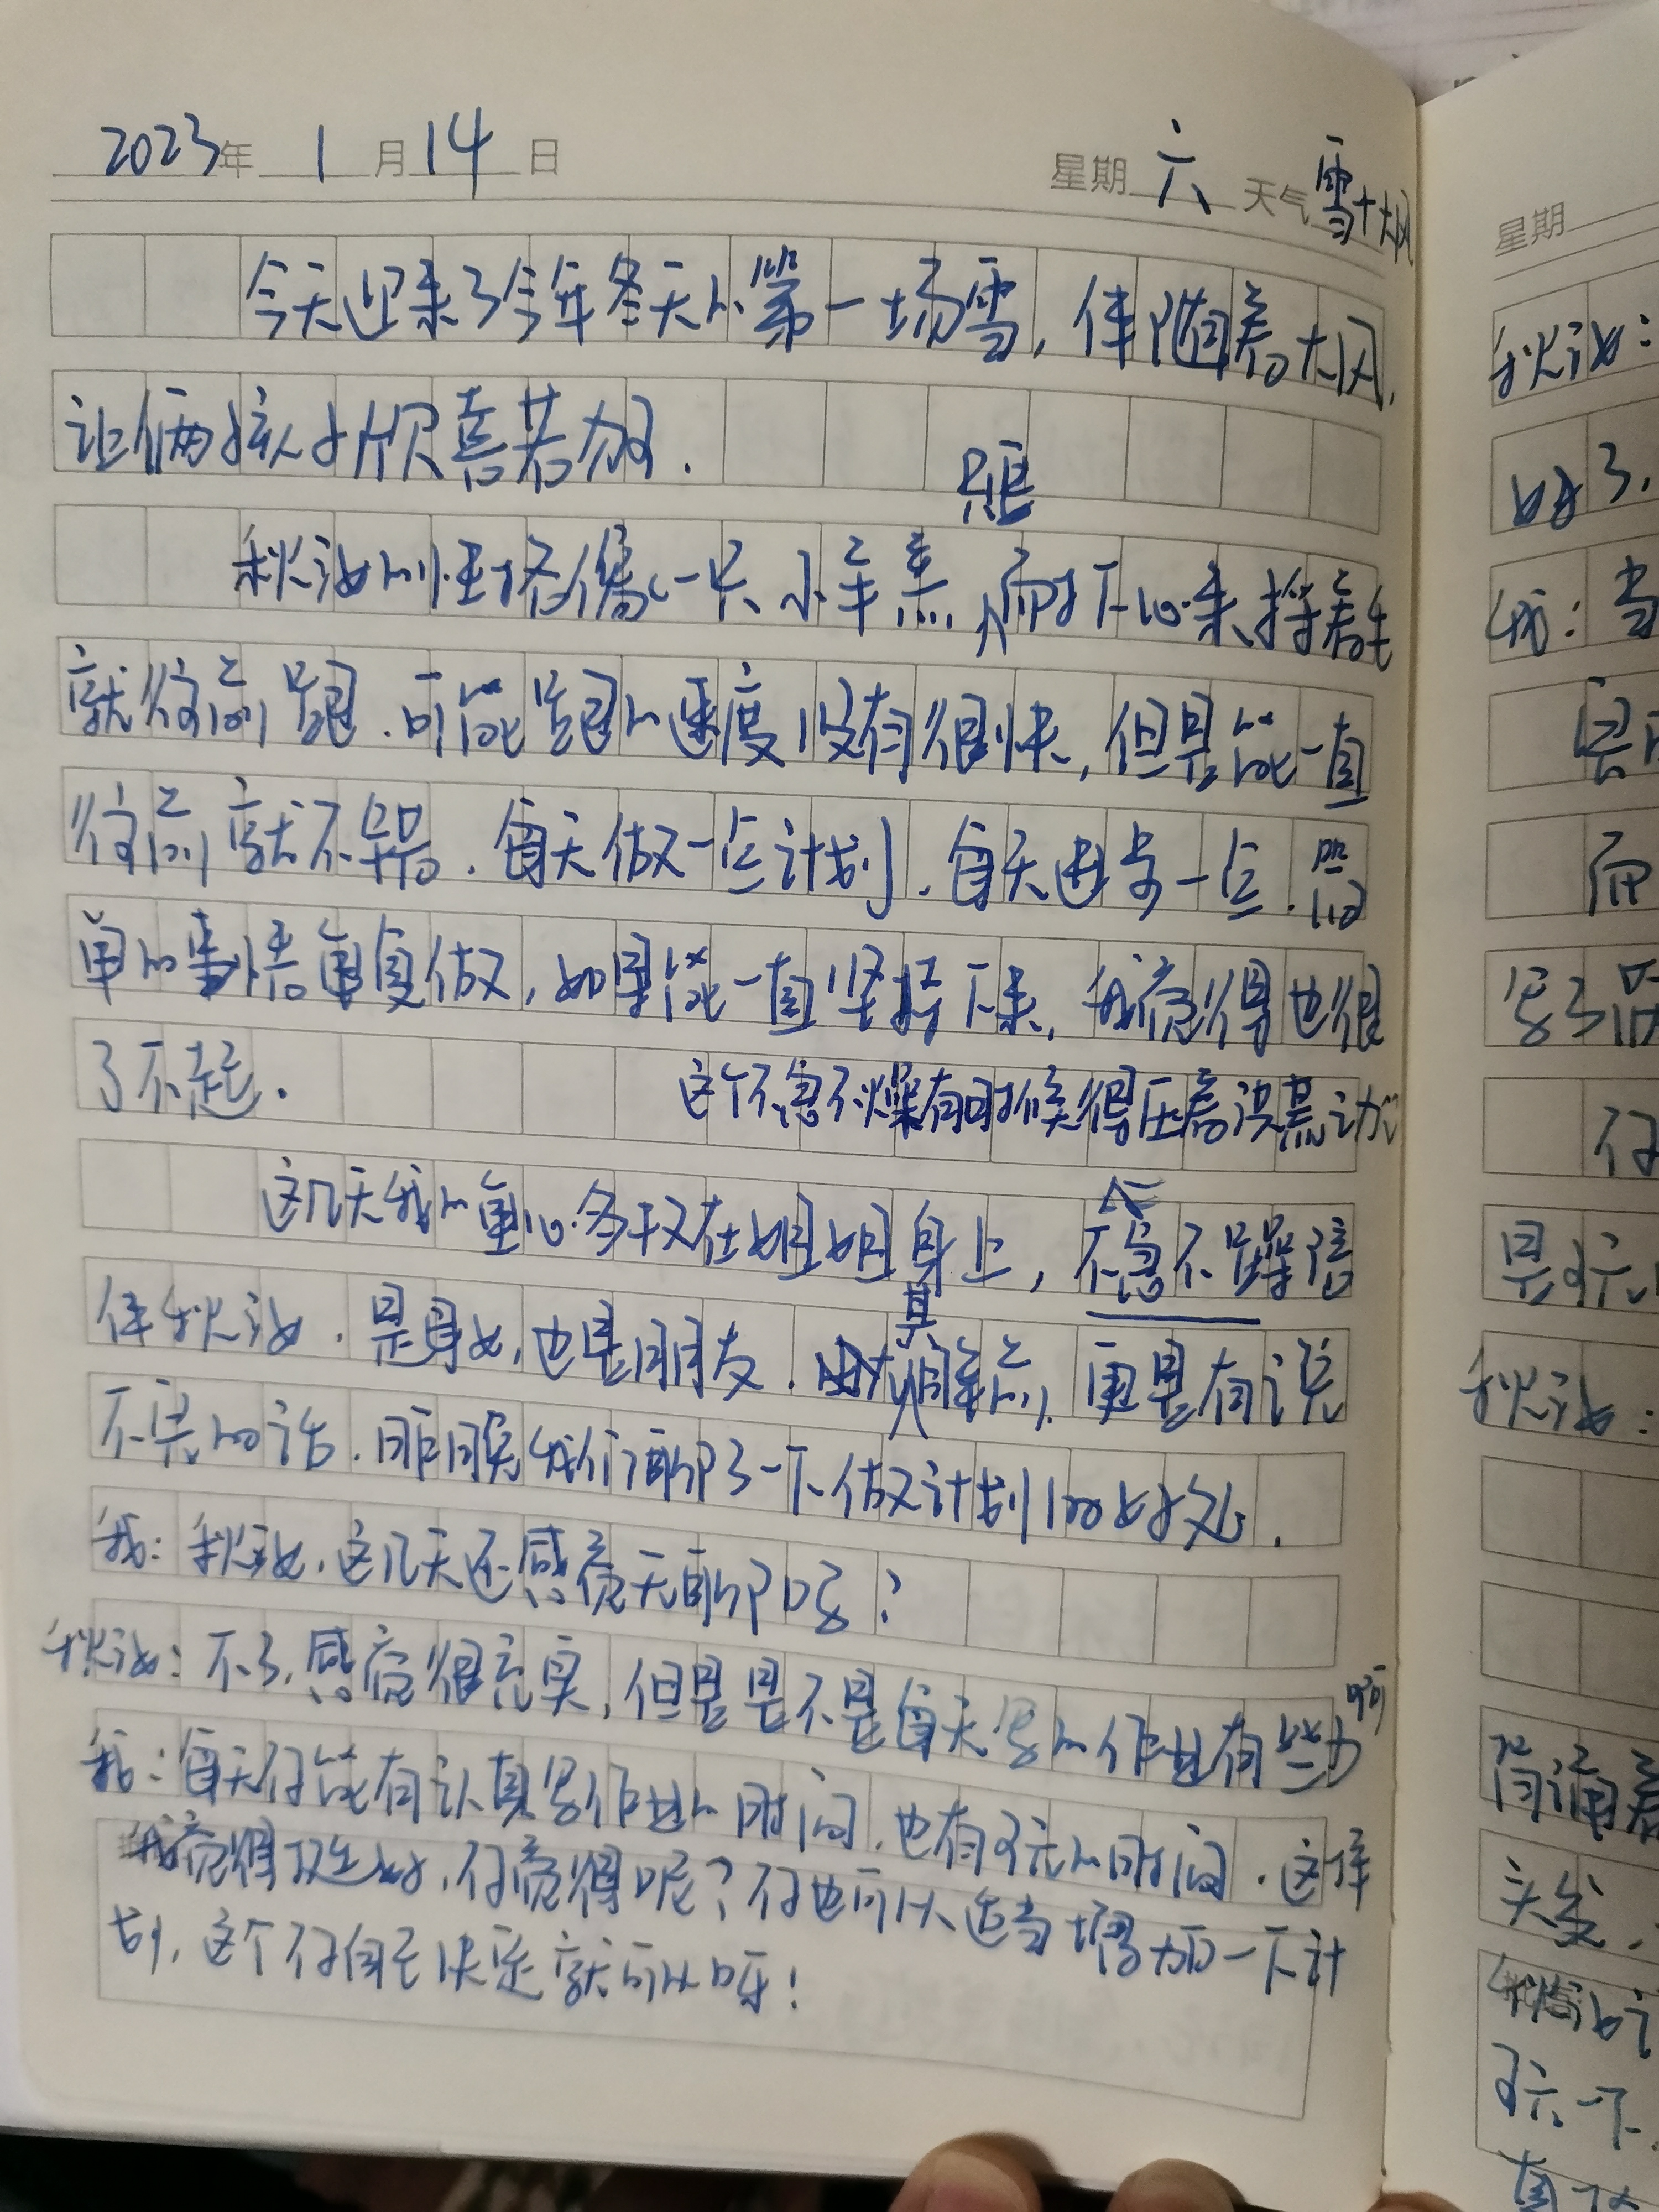 2023年 1月14日 星期六 天气雪+大风
今天迎来了今年冬天的第一场雪,伴随着大风,
让俩孩子欣喜若狂.
秋汝的性格像一只小乖羔,只要耐下心来,挨着她
就往前跑.可能跑的速度没有很快,但是能一直
往前就不错.每天做一点计划.每天进步一点.简
单的事情重复做,如果能一直坚持下来,我觉得也很
了不起.
这个不急不燥有时候得压着没暴动
这几天我的重心多放在姐姐身上,不急不躁陪
伴秋汝.是母女,也是朋友.尤其睡前,更是有说
不完的话.昨晚我们聊了一下做计划的好处.
我:秋汝,这几天还感觉无聊吗?
秋汝:不了,感觉很充实,但是是不是每天写的作业有些少啊
我:每天你能有认真写作业的时间,也有玩的时间.这样
我觉得很好,你觉得呢?你也可以适当增加一下计
划,这个你自己决定就可以呀!
星期
秋汝:
好了,
我:当
是
而
写了
你
是玩
秋汝:
背诵着
头发,
玩一下.